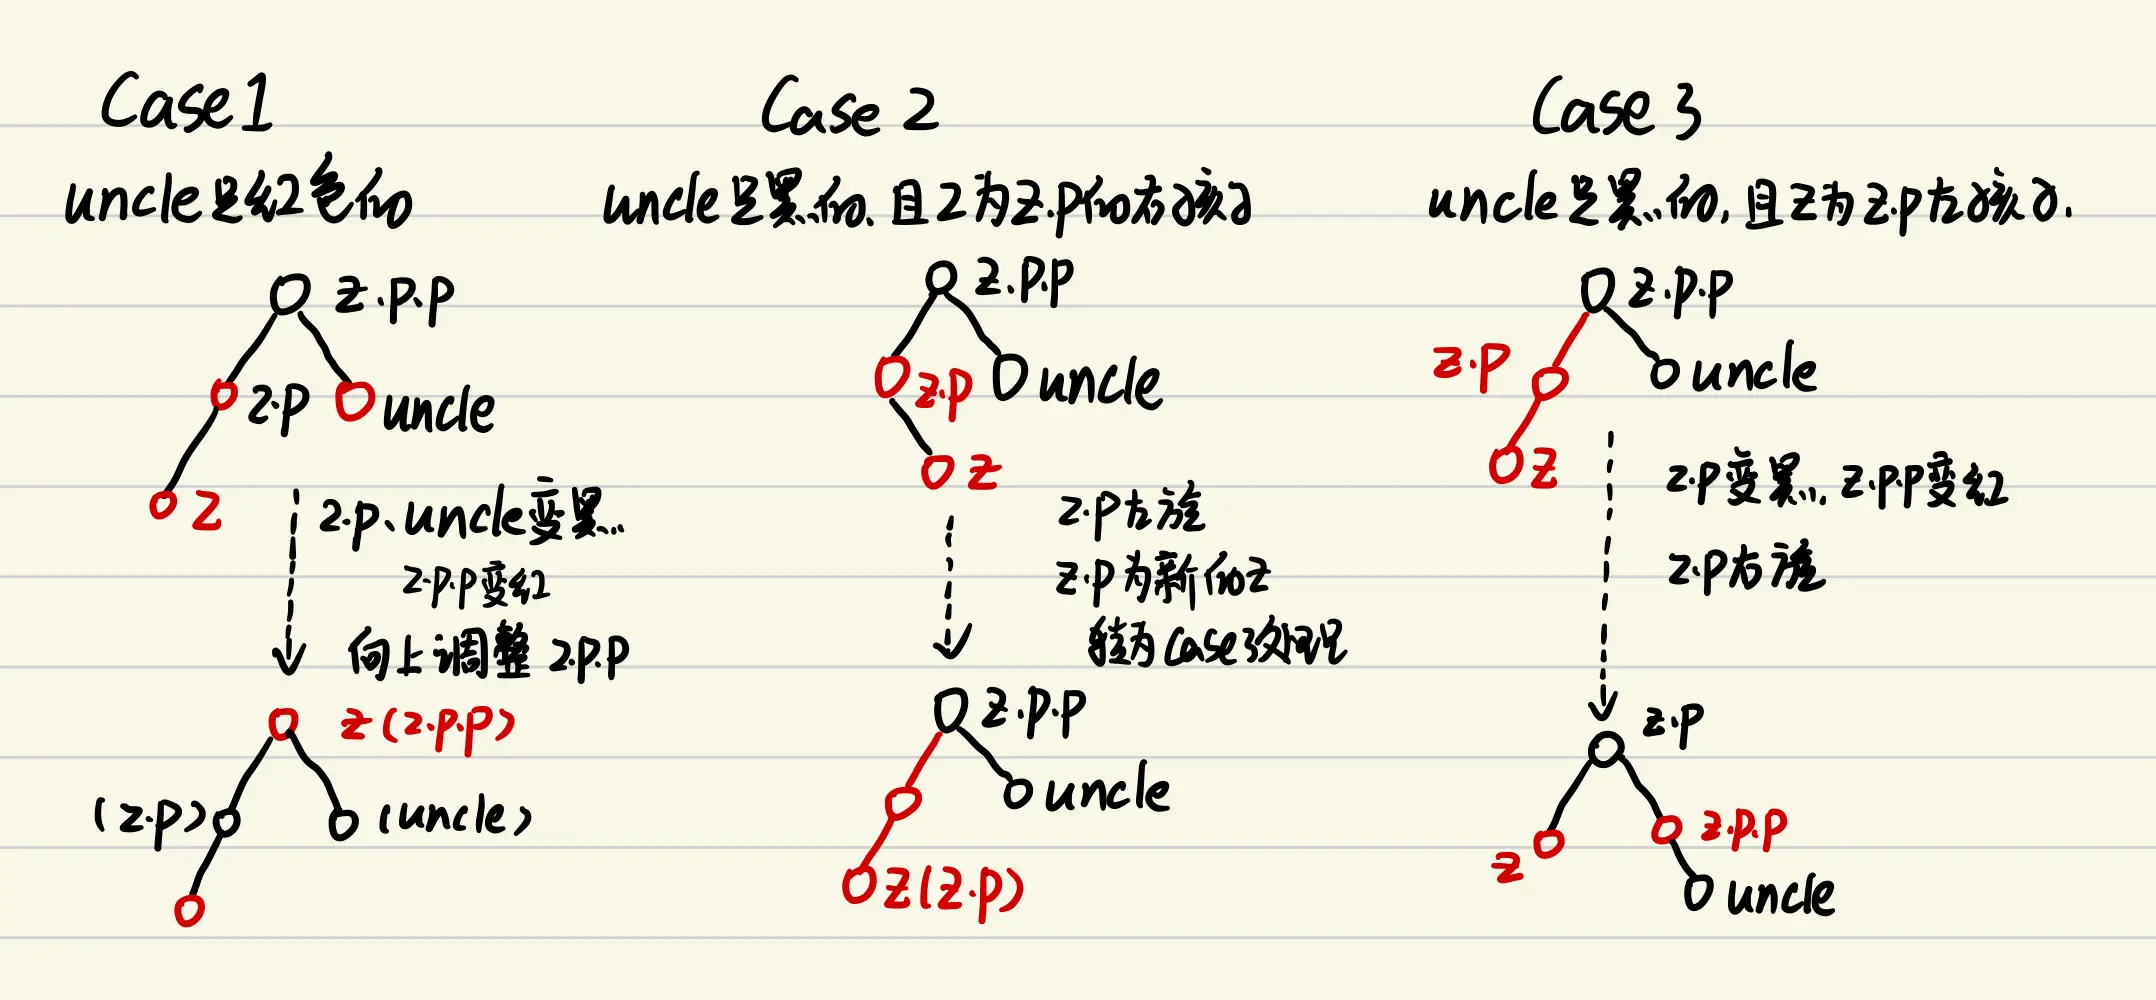 Case1
uncle是红色的
z.p.p
z.p
uncle
z
z.p、uncle变黑.
z.p.p变红
向上调整 z.p.p
z(z.p.p)
(z.p)
(uncle)
Case 2
uncle是黑的、且z为z.p的右孩子
z.p.p
z.p
uncle
z
z.p左旋
z.p为新的z
转为case3处理
z.p.p
uncle
z(z.p)
Case 3
uncle是黑的,且z为z.p左孩子.
z.p.p
z.p
uncle
z
z.p变黑,z.p.p变红
z.p右旋
z.p
z
z.p.p
uncle